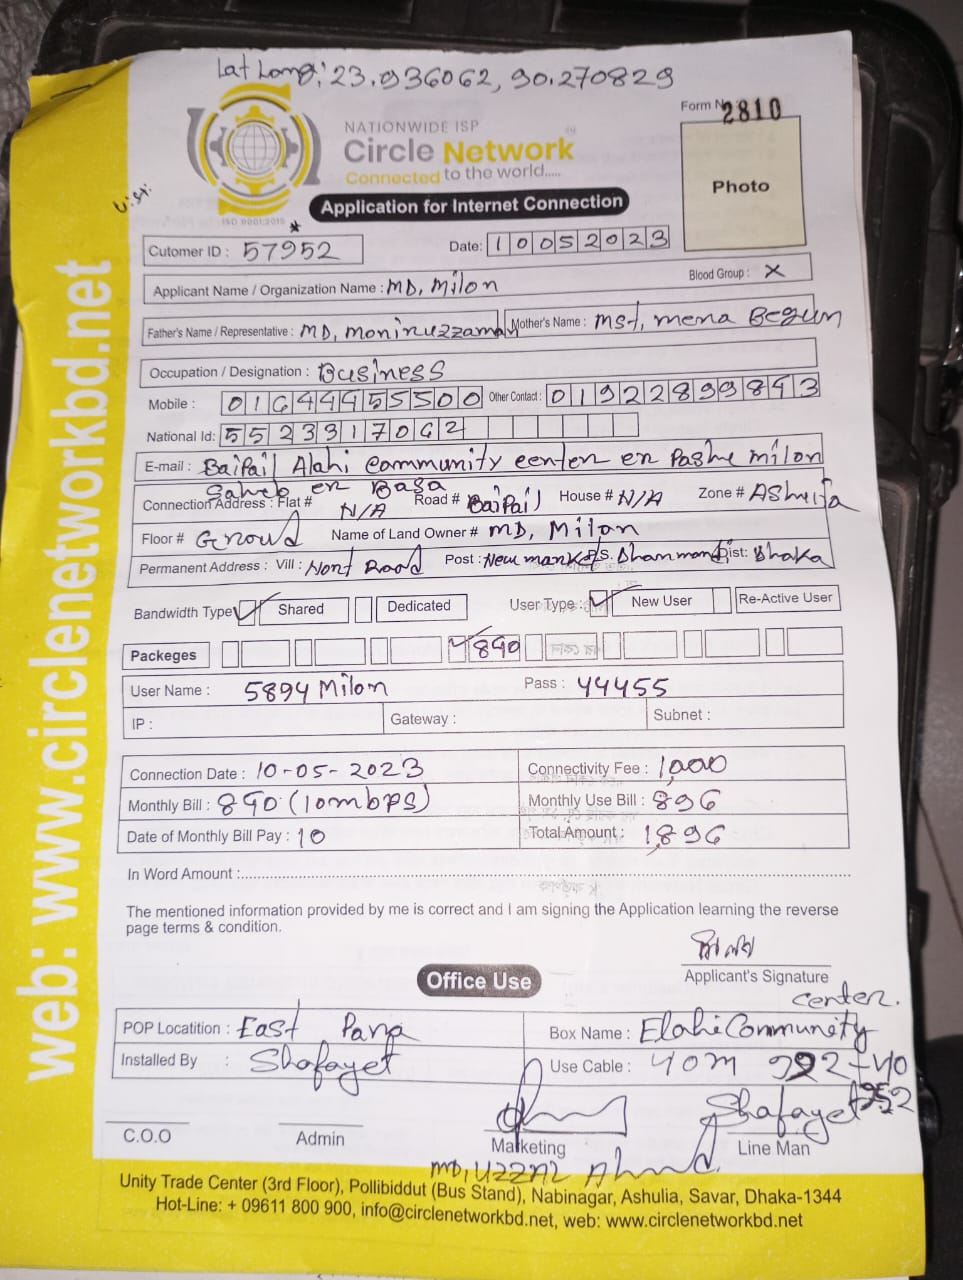 Lat Long: 23.936062, 90.270829
Form No 2810
NATIONWIDE ISP
Circle Network
Connected to the world.....
ISO 9001:2015
Photo
Application for Internet Connection
Cutomer ID : 57952
Date: 10052023
Applicant Name / Organization Name : MD, Milon
Blood Group : X
Father's Name / Representative : MD, Moniruzzaman
Mother's Name : Mst, Mena Begum
Occupation / Designation : Business
Mobile : 01644455500 Other Contact : 01922899843
National Id: 5523317062
E-mail : BaiPail Alahi Community center er Pashe Milon
Saheb er Basa
Connection Address : Flat # N/A Road # BaiPail House # N/A Zone # Ashulia
Floor # Groud Name of Land Owner # MD, Milon
Permanent Address : Vill : Nort Road Post : New market P.S. Dhanmondi Dist: Dhaka
Bandwidth Type ✓ Shared Dedicated User Type : ✓ New User Re-Active User
Packeges ✓ 890
User Name : 5894Milon Pass : 44455
IP : Gateway : Subnet :
Connection Date : 10-05-2023 Connectivity Fee : 1,000
Monthly Bill : 890 (10mbps) Monthly Use Bill : 896
Date of Monthly Bill Pay : 10 Total Amount : 1,896
In Word Amount :
The mentioned information provided by me is correct and I am signing the Application learning the reverse
page terms & condition.
মিলন
Applicant's Signature
Office Use
center.
POP Locatition : East Para Box Name : Elahi Community
Installed By : Shafayet Use Cable : 40m 992-40
952
Shafayet
C.O.O Admin Marketing Line Man
MD, Uzzal Ahmed
Unity Trade Center (3rd Floor), Pollibiddut (Bus Stand), Nabinagar, Ashulia, Savar, Dhaka-1344
Hot-Line: + 09611 800 900, info@circlenetworkbd.net, web: www.circlenetworkbd.net
web: www.circlenetworkbd.net